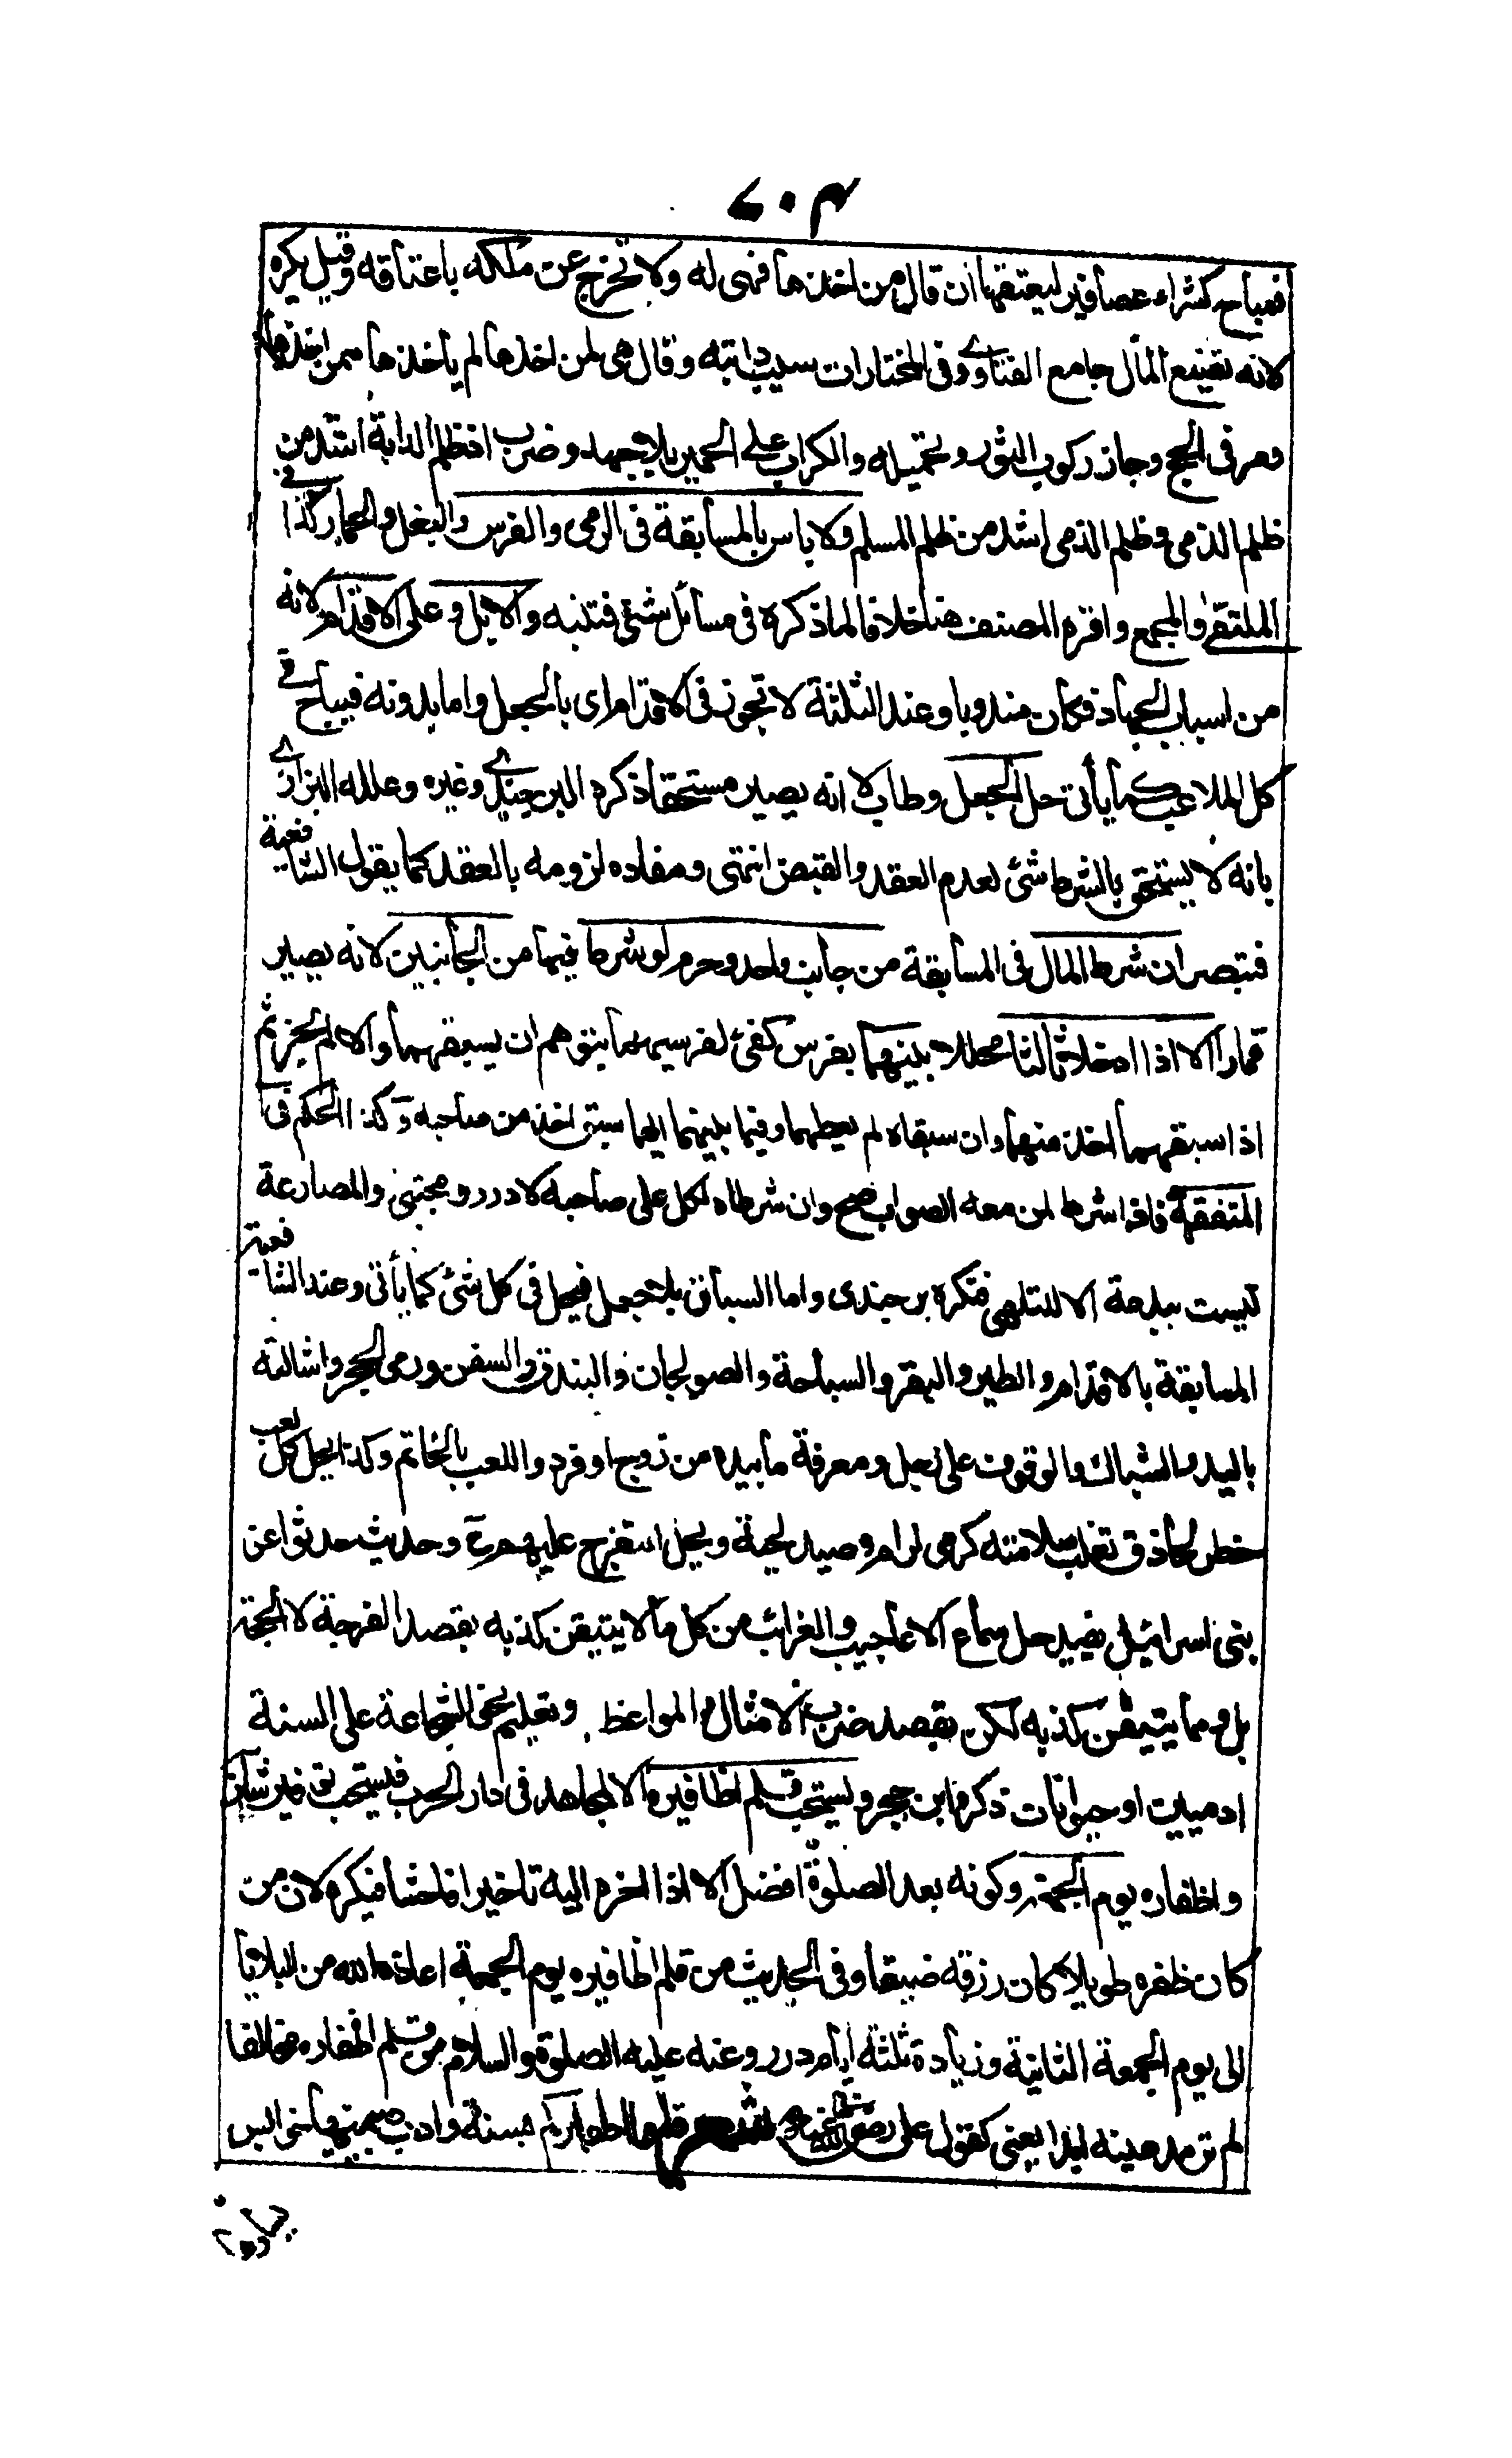 ٧٠٣
فمباح كشراء عصافير ليعتقها ان قال من اخذها فهى له ولا تخرج عن ملكه باعتاقه وقيل يكره
لانه تضييع المال جامع الفتاوى وفى المختارات سيب دابته وقال هى لمن اخذها لم ياخذها ممن اخذها
ومر فى الحج وجاز ركوب الثور وتحميله والكراب على الحمير بلا جهد وضرب اذ ظلم الدابة اشد من
ظلم الذمى وظلم الذمى اشد من ظلم المسلم ولا باس بالمسابقة فى الرمى والفرس والبغل والحمار كذا فى
الملتقى والمجمع واقره المصنف هنا خلافا لما ذكره فى مسائل شتى فتنبه والابل وعلى الاقدام لانه
من اسباب الجهاد فكان مندوبا وعند الثلثة لا تجوز فى الاقدام اى بالجعل واما بدونه فيباح فى
كل الملاعب كما يأتى حل الجعل وطاب لا انه يصير مستحقا ذكره البرجندى وغيره وعلله البزازى
بانه لا يستحق بالشرط شئ لعدم العقد والقبض انتهى ومفاده لزومه بالعقد كما يقول الشافعية
فتبصر ان شرط المال فى المسابقة من جانب واحد وحرم لو شرط فيها من الجانبين لانه يصير
قمارا الا اذا ادخلا ثالثا محللا بينهما بفرس كفئ لفرسيهما يتوهم ان يسبقهما والا لم يجز ثم
اذا سبقهما اخذ منهما وان سبقاه لم يعطهما وفيما بينهما ايهما سبق اخذ من صاحبه وكذا الحكم فى
المتفقهة فاذا شرط لمن معه الصواب صح وان شرطاه لكل على صاحبه لا درر ومجتبى والمصارعة
ليست ببدعة الا للتلهى فتكره برجندى واما السباق بلا جعل فيحل فى كل شئ كما يأتى وعند الشافعية
المسابقة بالاقدام والطير والبقر والسباحة والصولجان والبندق والسفن ورمى الحجر واشالته
باليد والشباك والوقوف على رجل ومعرفة ما بيده من زوج او فرد واللعب بالخاتم وكذا يحل كل لعب
خطر لحاذق تغلب سلامته كرمى لرام وصيد لحية ويحل التفرج عليهم ح وحديث حدثوا عن
بنى اسرائيل يفيد حل سماع الاعاجيب والغرائب من كل ما لا يتيقن كذبه بقصد الفرجة لا الحجة
بل وما يتيقن كذبه لكن بقصد ضرب الامثال والمواعظ وتعليم نحو الشجاعة على السنة
ادميين او حيوانات ذكره ابن حجر ويستحب قلم اظافيره الا لمجاهد فى دار الحرب فيستحب توفير شاربه
واظفاره يوم الجمعة وكونه بعد الصلوة افضل الا اذا اخره اليه تاخيرا فاحشا فيكره لان من
كان ظفره طويلا كان رزقه ضيقا وفى الحديث من قلم اظافيره يوم الجمعة اعاذه الله من البلايا
الى يوم الجمعة الثانية وزيادة ثلثة ايام درر وعنه عليه الصلوة والسلام من قلم اظفاره مخالفا
لم ترمد عينه ابدا يعنى كقول على رضى الله عنه شعر قلموا اظفاركم بسنة وادب يمينها خوابس